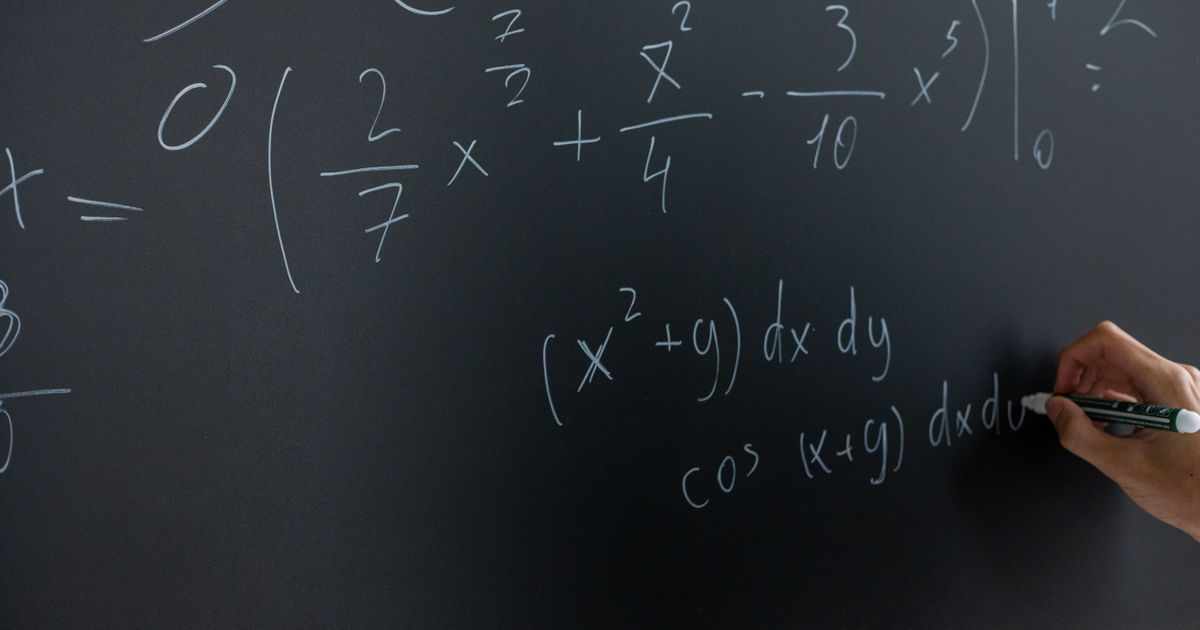 x = 0 ( 2/7 x^7/2 + x^2/4 - 3/10 x^5 ) | 0 =
(x^2 + y) dx dy
cos (x+y) dx d